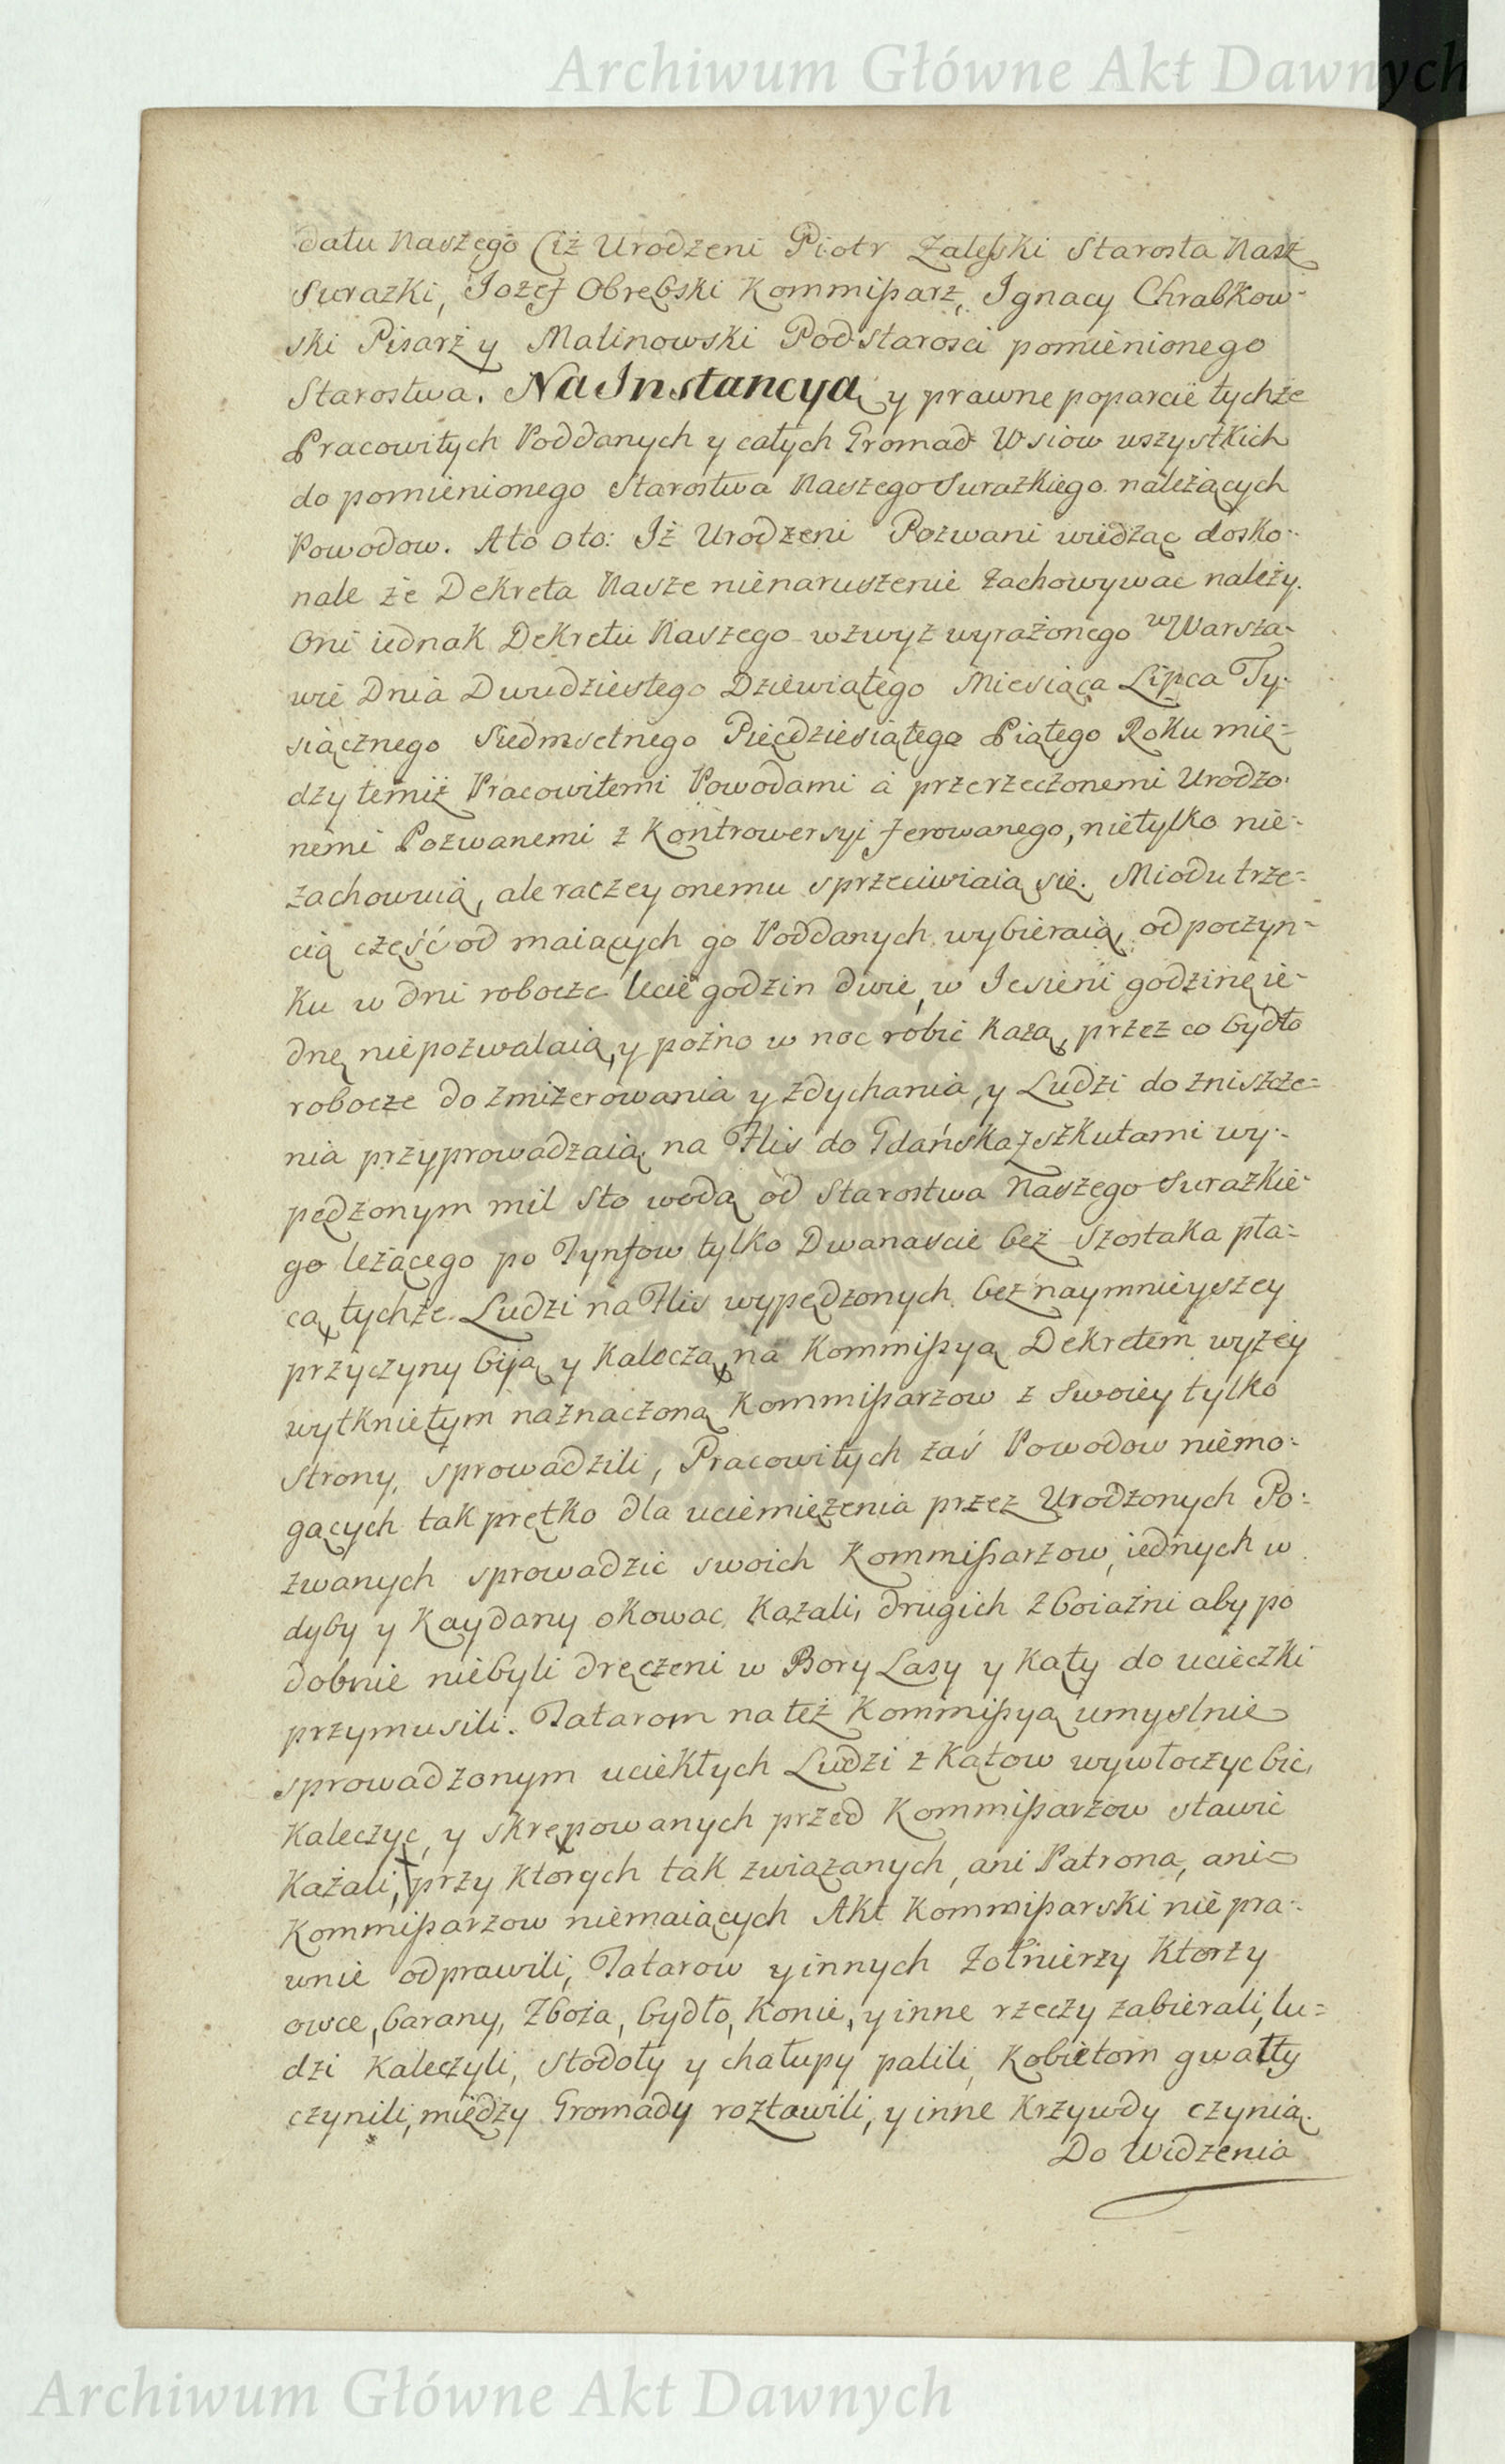 Archiwum Główne Akt Dawnych
datu Naszego Ciż Urodzeni Piotr Zaleſski Starosta Nasz
Surazki, Jozef Obrębski Kommiſsarz, Ignacy Chrabkow-
ski Pisarz y Malinowski Podstarosci pomienionego
Starostwa. Na Instancyą y prawne poparcie tychże
Pracowitych Poddanych y całych Gromad Wsiow wszystkich
do pomienionego Starostwa Naszego Surazkiego należących
Powodow. Ato oto: Iż Urodzeni Pozwani wiedząc dosko-
nale że Dekreta Nasze nienaruszenie zachowywac należy.
Oni iednak Dekretu Naszego wzwyż wyrażonego w Warsza-
wie Dnia Dwudziestego Dziewiątego Miesiąca Lipca Ty-
siącznego Siedmsetnego Pięcdziesiątego Piątego Roku mię-
dzy temiż Pracowitemi Powodami á przerzeczonemi Urodzo-
nemi Pozwanemi z Kontrowersyi ferowanego, nietylko nie-
zachowuią, ale raczey onemu sprzeciwiaią się. Miodu trze-
cią część od maiących go Poddanych wybieraią, odpoczyn-
ku w dni robocze lecie godzin dwie, w Jesieni godzinę ie-
dnę niepozwalaią, y pozno w noc robic każą, przez co bydło
robocze do zmizerowania y zdychania, y Ludzi do zniszcze-
nia przyprowadzaią, na Flis do Gdańska zeszkutami wy-
pędzonym mil sto wodą od Starostwa Naszego Surazkie-
go leżącego po Tynfow tylko Dwanascie bez Szostaka pła-
cą, tychże Ludzi na Flis wypędzonych bez naymnieyszey
przyczyny biją y kaleczą, na Kommiſsyą Dekretem wyżey
wytkniętym naznaczoną Kommiſsarzow z swoiey tylko
strony, sprowadzili, Pracowitych zaś Powodow niemo-
gących tak prętko dla uciemiężenia przez Urodzonych Po-
zwanych sprowadzic swoich Kommiſsarzow, iednych w
dyby y Kaydany okowac kazali, drugich z boiaźni aby po
dobnie niebyli dręczeni w Bory Lasy y Kąty do ucieczki
przymusili. Tatarom na też Kommiſsyą umyslnie
sprowadzonym uciekłych Ludzi z Kątow wywłoczyc bic,
kaleczyc, y skrępowanych przed Kommiſsarzow stawic
każali, przy ktorych tak związanych, ani Patrona, ani
Kommiſsarzow niemaiących Akt Kommiſsarski niepra-
wnie odprawili, Tatarow y innych Żołnierzy ktorzy
owce, barany, Zboża, bydło, Konie, y inne rzeczy zabierali, lu-
dzi kaleczyli, stodoły y chałupy palili, kobietom gwałty
czynili, między Gromady roztawili, y inne krzywdy czynią.
Do Widzenia
Archiwum Główne Akt Dawnych